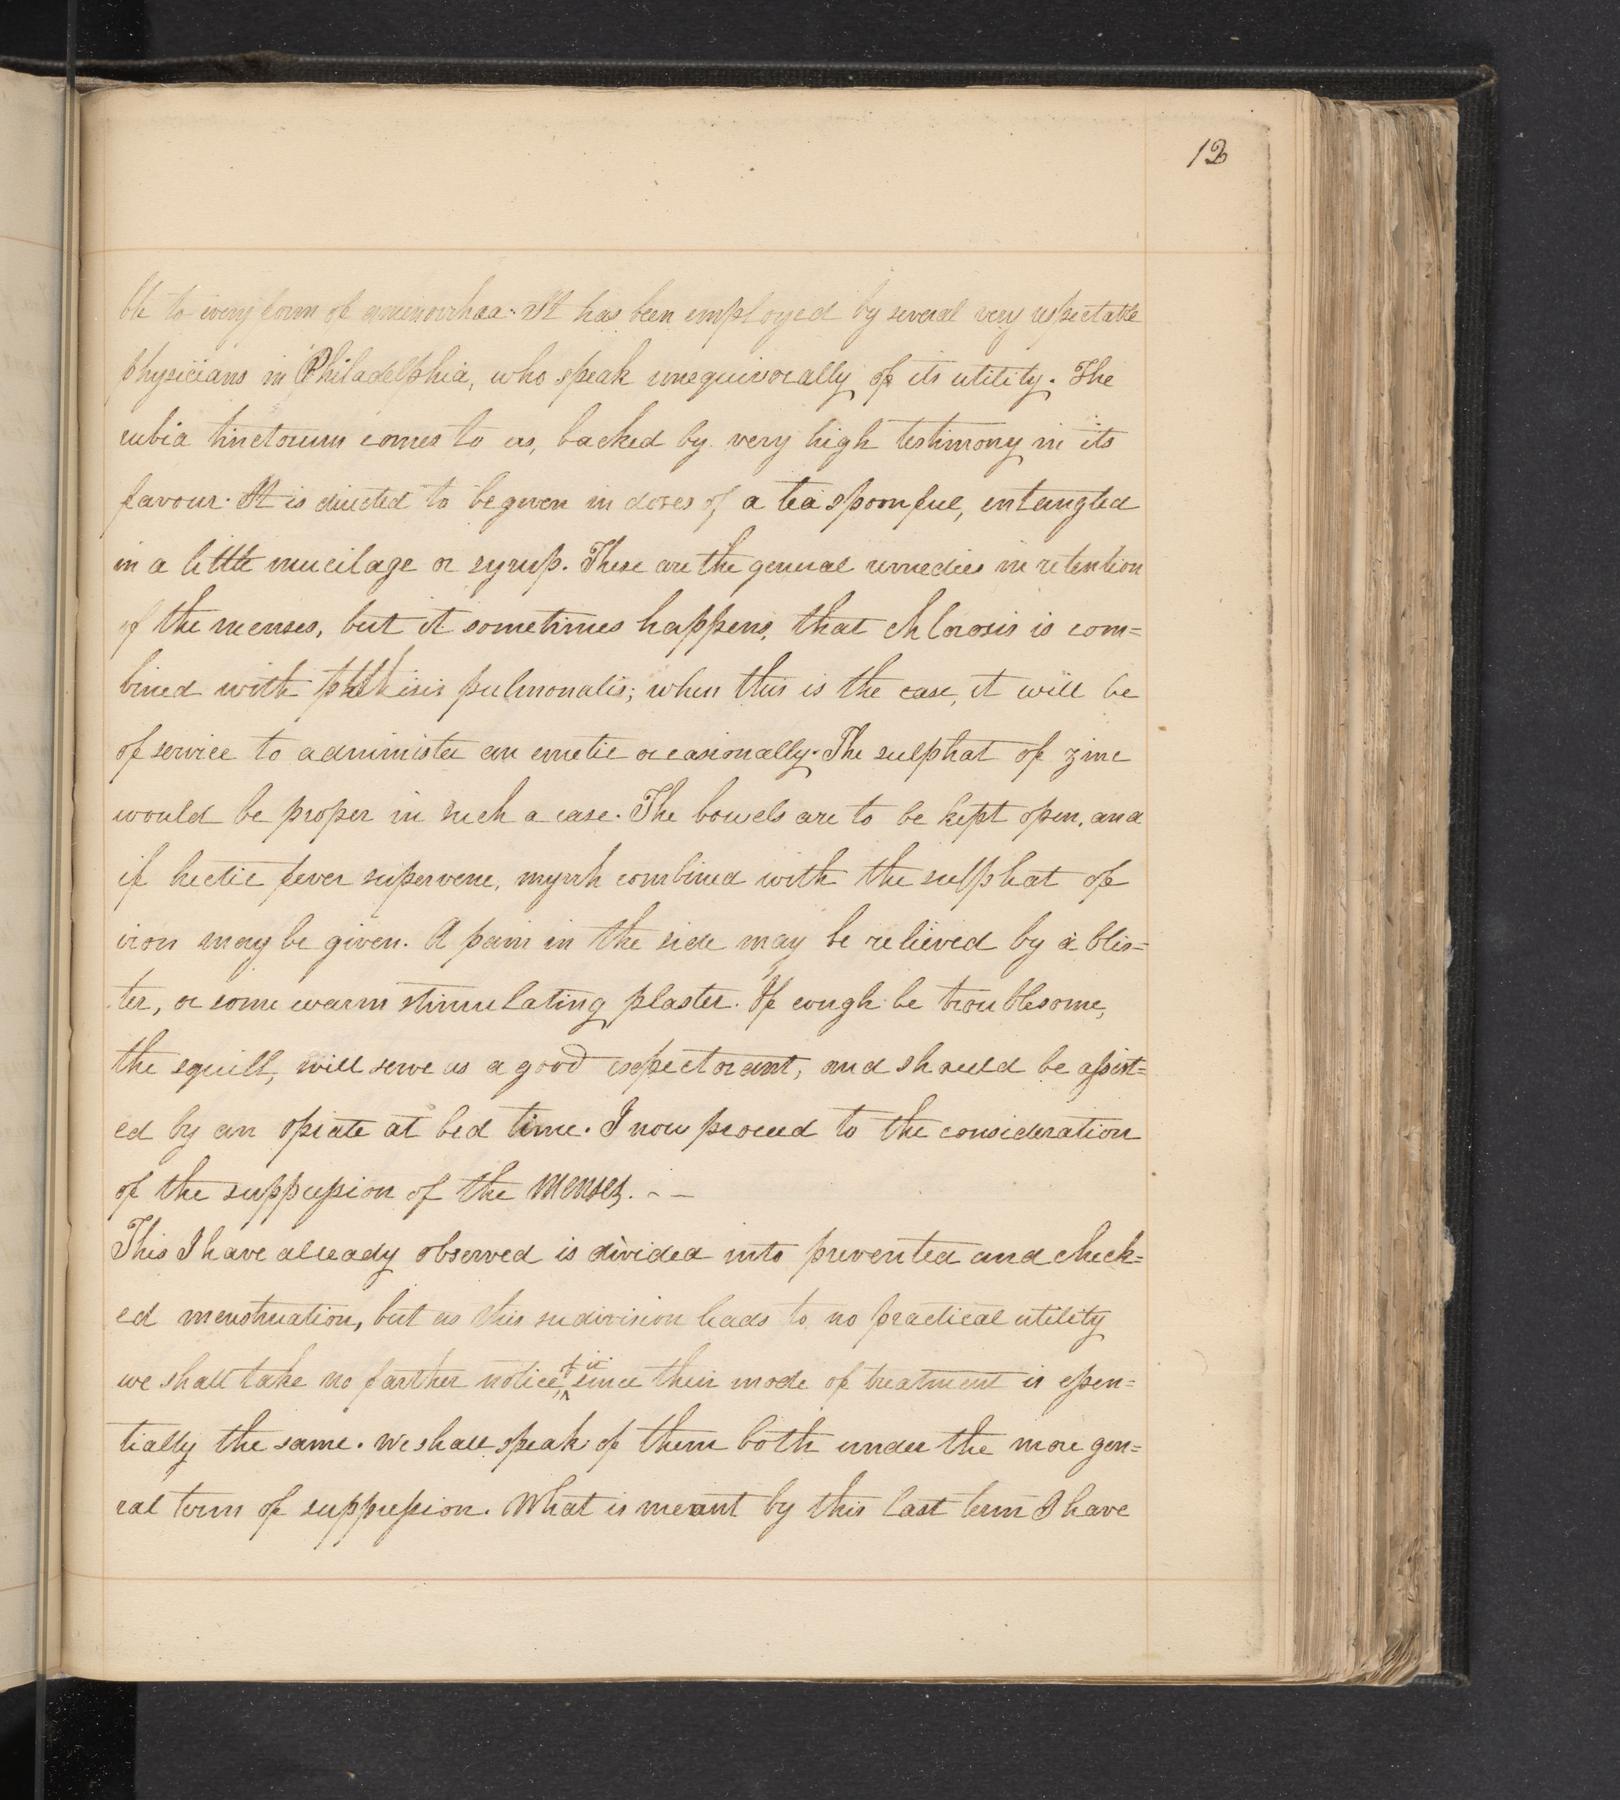 12
ble to every form of amenorrhœa. It has been employed by several very respectable
physicians in Philadelphia, who speak unequivocally of its utility. The
rubia tinctorum comes to us, backed by very high testimony in its
favour. It is directed to be given in doses of a teaspoonful, entangled
in a little mucilage or syrup. These are the general remedies in retention
of the menses, but it sometimes happens, that chlorosis is com=
bined with phthisis pulmonalis; when this is the case, it will be
of service to administer an emetic occasionally. The sulphat of zinc
would be proper in such a case. The bowels are to be kept open, and
if hectic fever supervene, myrrh combined with the sulphat of
iron may be given. A pain in the side may be relieved by a blis=
ter, or some warm stimulating plaster. If cough be troublesome,
the squill, will serve as a good expectorant, and should be assist=
ed by an opiate at bed time. I now proceed to the consideration
of the suppression of the menses. - -
This I have already observed is divided into prevented and check=
ed menstruation, but as this sudivision leads to no practical utility
we shall take no farther notice, of it since their mode of treatment is essen=
tially the same. We shall speak of them both under the more gen=
ral term of suppression. What is meant by this last term I have